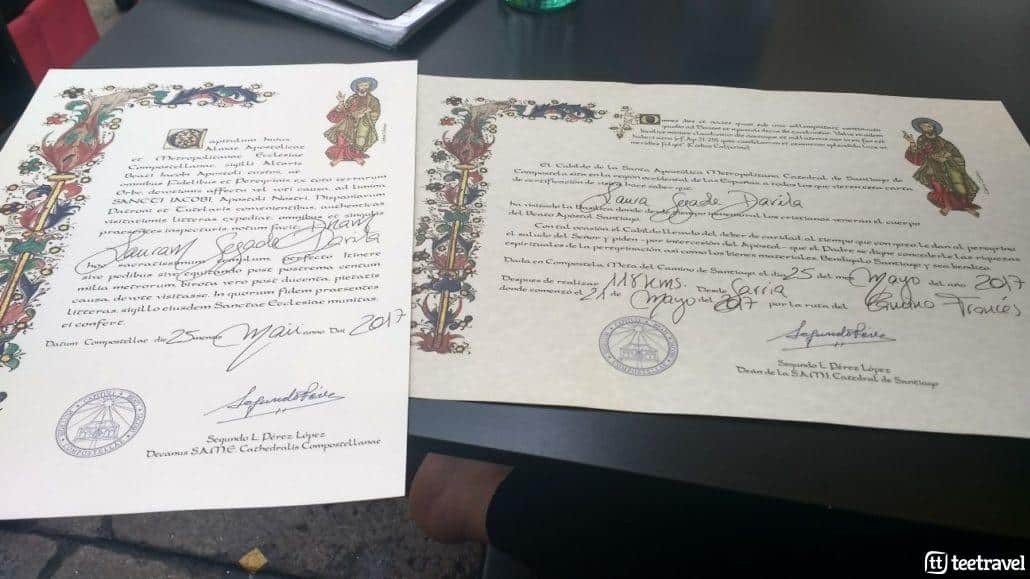 Capitulum huius
Almae Apostolicae
et Metropolitanae Ecclesiae
Compostellanae, sigilli Altaris
Beati Jacobi Apostoli custos, ut
omnibus Fidelibus et Peregrinis ex toto terrarum
Orbe, devotionis affectu vel voti causa, ad limina
SANCTI JACOBI, Apostoli Nostri, Hispaniarum
Patroni et Tutelaris convenientibus, authenticas
visitationis litteras expediat, omnibus et singulis
praesentes inspecturis, notum facit: Dnam
Lauram Segade Davila
hoc sacratissimum templum, perfecto Itinere
sive pedibus sive equitando post postrema centum
milia metrorum, birota vero post ducenta, pietatis
causa, devote visitasse. In quorum fidem praesentes
litteras, sigillo eiusdem Sanctae Ecclesiae munitas,
ei confert.
Datum Compostellae die 25 mensis Maii anno Dni 2017
Segundo L. Pérez López
Decanus S.A.M.E. Cathedralis Compostellanae
El Cabildo de la Santa Apostólica Metropolitana Catedral de Santiago de
Compostela sita en la región occidental de las Españas, a todos los que vieren esta carta
de certificación de visita hace saber que:
Laura Segade Davila
ha visitado la Basílica donde desde tiempo inmemorial los cristianos veneran el cuerpo
del Beato Apóstol Santiago.
Con tal ocasión el Cabildo llevado del deber de caridad, al tiempo que con gozo le dan al peregrino
el saludo del Señor y piden -por intercesión del Apóstol- que el Padre digne concederle las riquezas
espirituales de la peregrinación, así como los bienes materiales. Bendígalo Santiago y sea bendito.
Dada en Compostela, Meta del Camino de Santiago el día 25 del mes Mayo del año 2017
Después de realizar 118 kms. Desde Sarria
donde comenzó el 21 de Mayo del 2017 por la ruta del Camino Francés
Segundo L. Pérez López
Dean de la S.A.M.I. Catedral de Santiago
tt teetravel